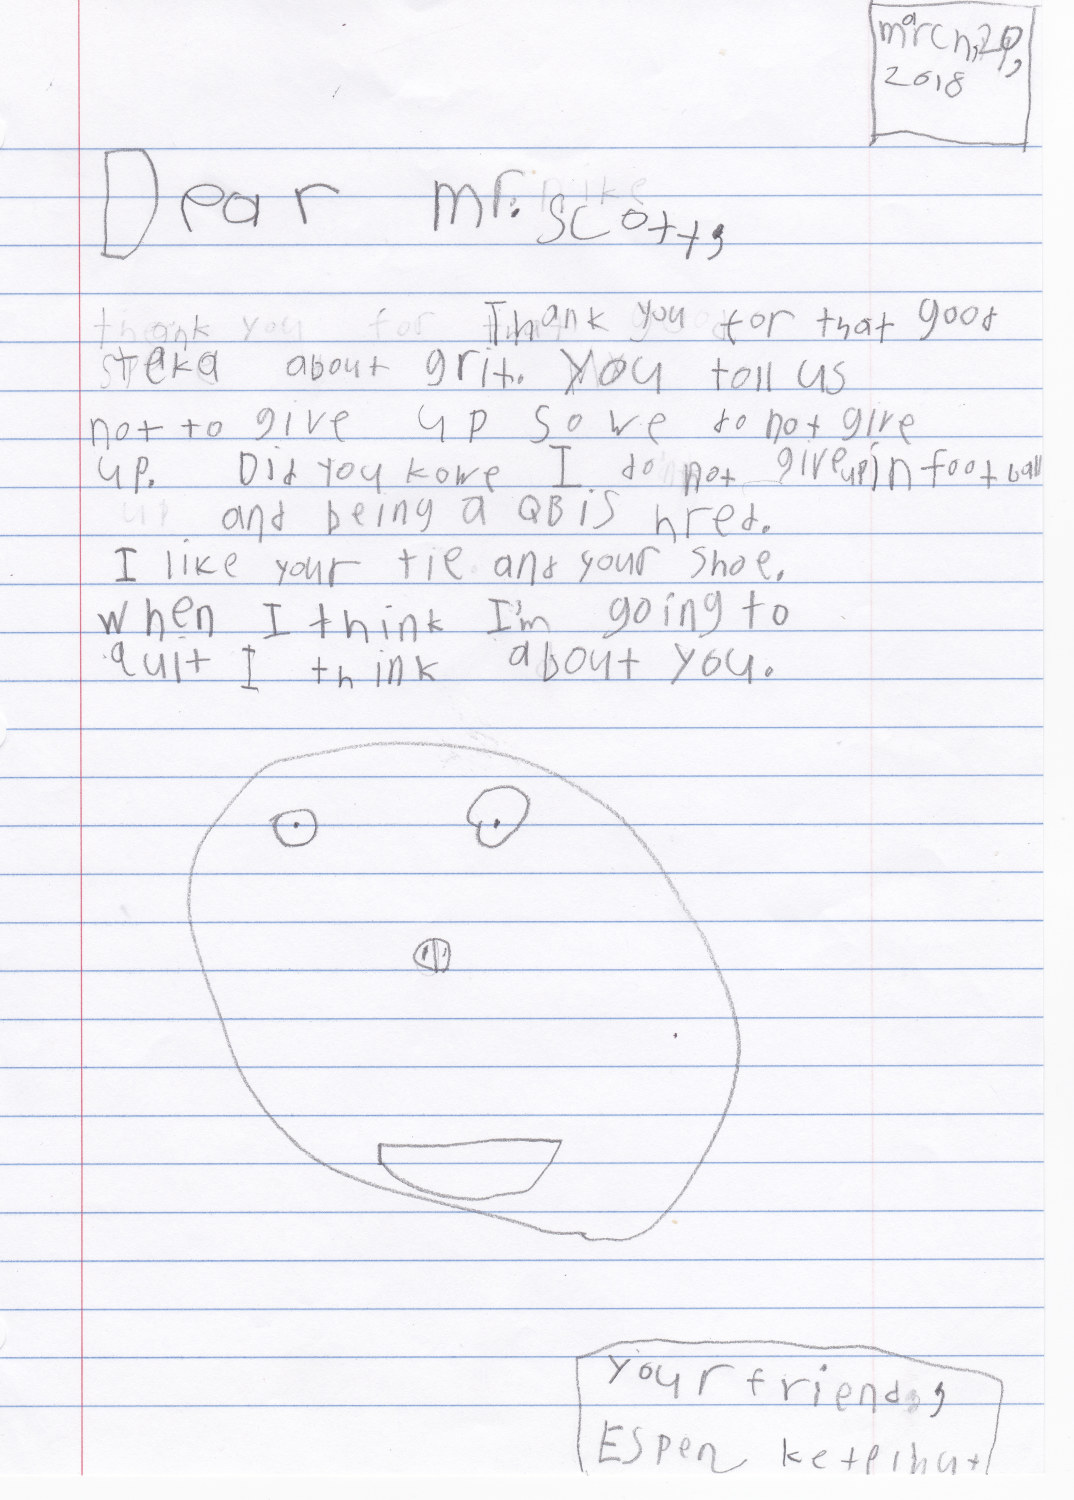 march, 29,
2018
Dear Mr. Scott,
Thank you for that good
steka about grit. You tell us
not to give up so we do not give
up. Did you kowe I do not give up in football
and being a QB is hred.
I like your tie and your shoe.
when I think I'm going to
quit I think about you.
your friend,
ESpen